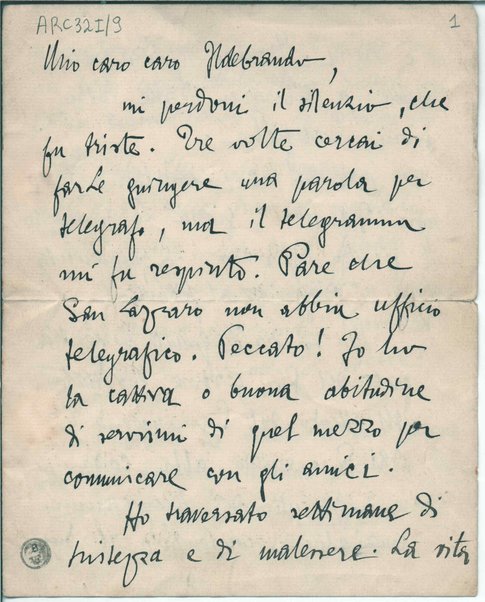 ARC32I/9 1
Mio caro caro Ildebrando,
mi perdoni il silenzio, che
fu triste. Tre volte cercai di
farLe giungere una parola per
telegrafo, ma il telegramma
mi fu respinto. Pare che
San Lazzaro non abbia ufficio
telegrafico. Peccato! Io ho
la cattiva o buona abitudine
di servirmi di quel mezzo per
comunicare con gli amici.
Ho traversato settimane di
tristezza e di malessere. La vita